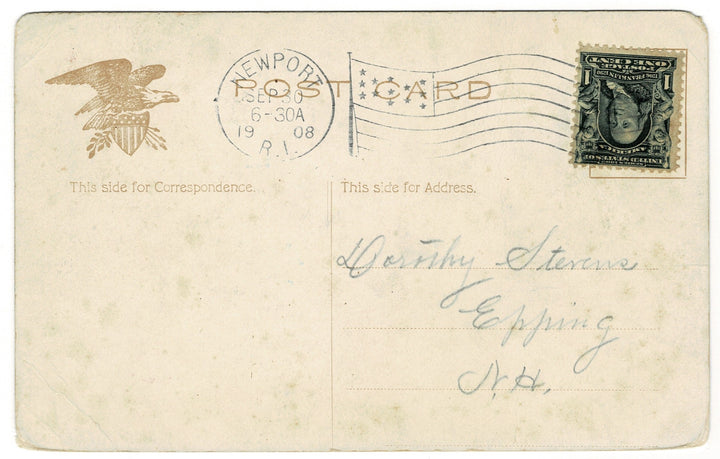 POST CARD
NEWPORT
SEP 30
6-30A
19 08
R.I.
This side for Correspondence.
This side for Address.
Dorothy Stevens
Epping
N.H.
UNITED STATES OF
AMERICA
1 1
FRANKLIN
POSTAGE
ONE CENT